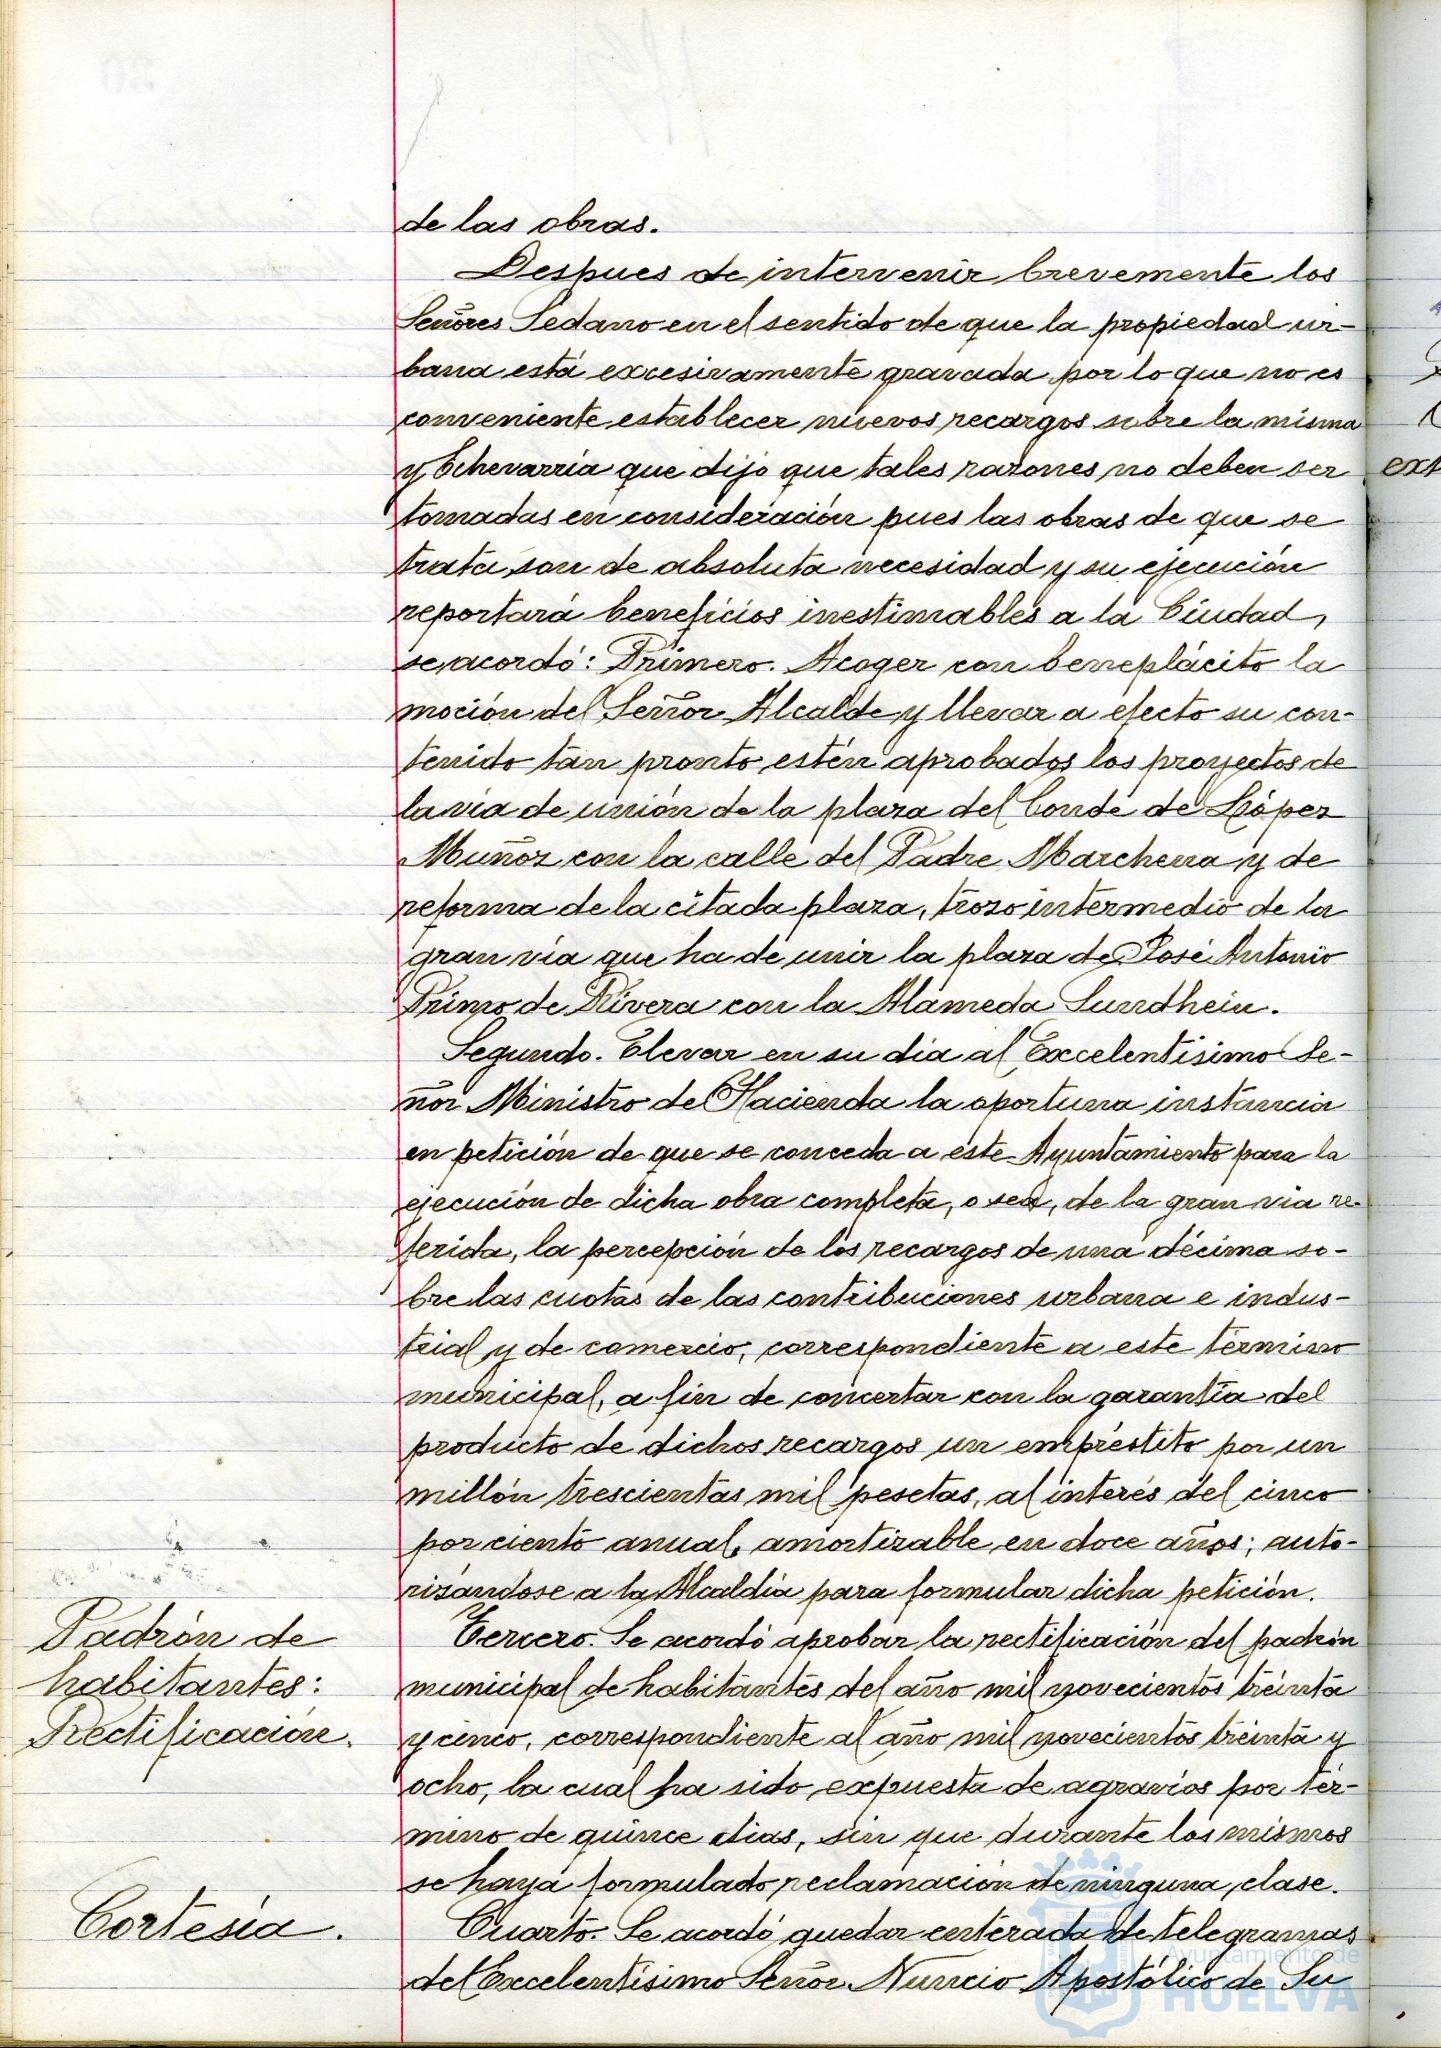 de las obras.
Despues de intervenir brevemente los
Señores Sedano en el sentido de que la propiedad ur-
bana está excesivamente gravada por lo que no es
conveniente establecer nuevos recargos sobre la misma
y Echevarria que dijo que tales razones no deben ser
tomadas en consideración pues las obras de que se
trata son de absoluta necesidad y su ejecución
reportará beneficios inestimables a la Ciudad,
se acordó: Primero. Acoger con beneplácito la
moción del Señor Alcalde y llevar a efecto su con-
tenido tan pronto estén aprobados los proyectos de
la via de unión de la plaza del Conde de López
Muñoz con la calle del Padre Marchena y de
reforma de la citada plaza, trozo intermedio de la
gran via que ha de unir la plaza de José Antonio
Primo de Rivera con la Alameda Sundhein.
Segundo. Elevar en su dia al Excelentisimo Se-
ñor Ministro de Hacienda la oportuna instancia
en petición de que se conceda a este Ayuntamiento para la
ejecución de dicha obra completa, o sea, de la gran via re-
ferida, la percepción de los recargos de una décima so-
bre las cuotas de las contribuciones urbana e indus-
trial y de comercio, correspondiente a este término
municipal, a fin de concertar con la garantia del
producto de dichos recargos un empréstito por un
millón trescientas mil pesetas, al interés del cinco
por ciento anual, amortizable en doce años; auto-
rizándose a la Alcaldia para formular dicha petición.
Padrón de
habitantes:
Rectificación.
Tercero. Se acordó aprobar la rectificación del padrón
municipal de habitantes del año mil novecientos treinta
y cinco, correspondiente al año mil novecientos treinta y
ocho, la cual ha sido expuesta de agravios por tér-
mino de quince dias, sin que durante los mismos
se haya formulado reclamación de ninguna clase.
Cortesia.
Cuarto. Se acordó quedar enterada de telegramas
del Excelentisimo Señor Nuncio Apostólico de Su
ext
Ayuntamiento de
HUELVA